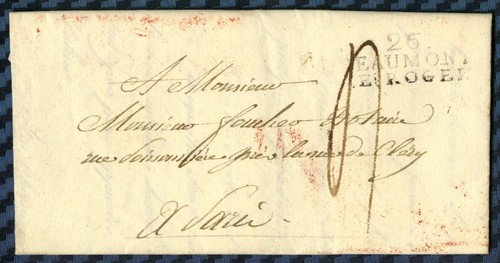 26
EAUMONT
E-ROGER
A Monsieur
Monsieur foucher Notaire
rue poissonnière près la rue de Cléry
A Paris